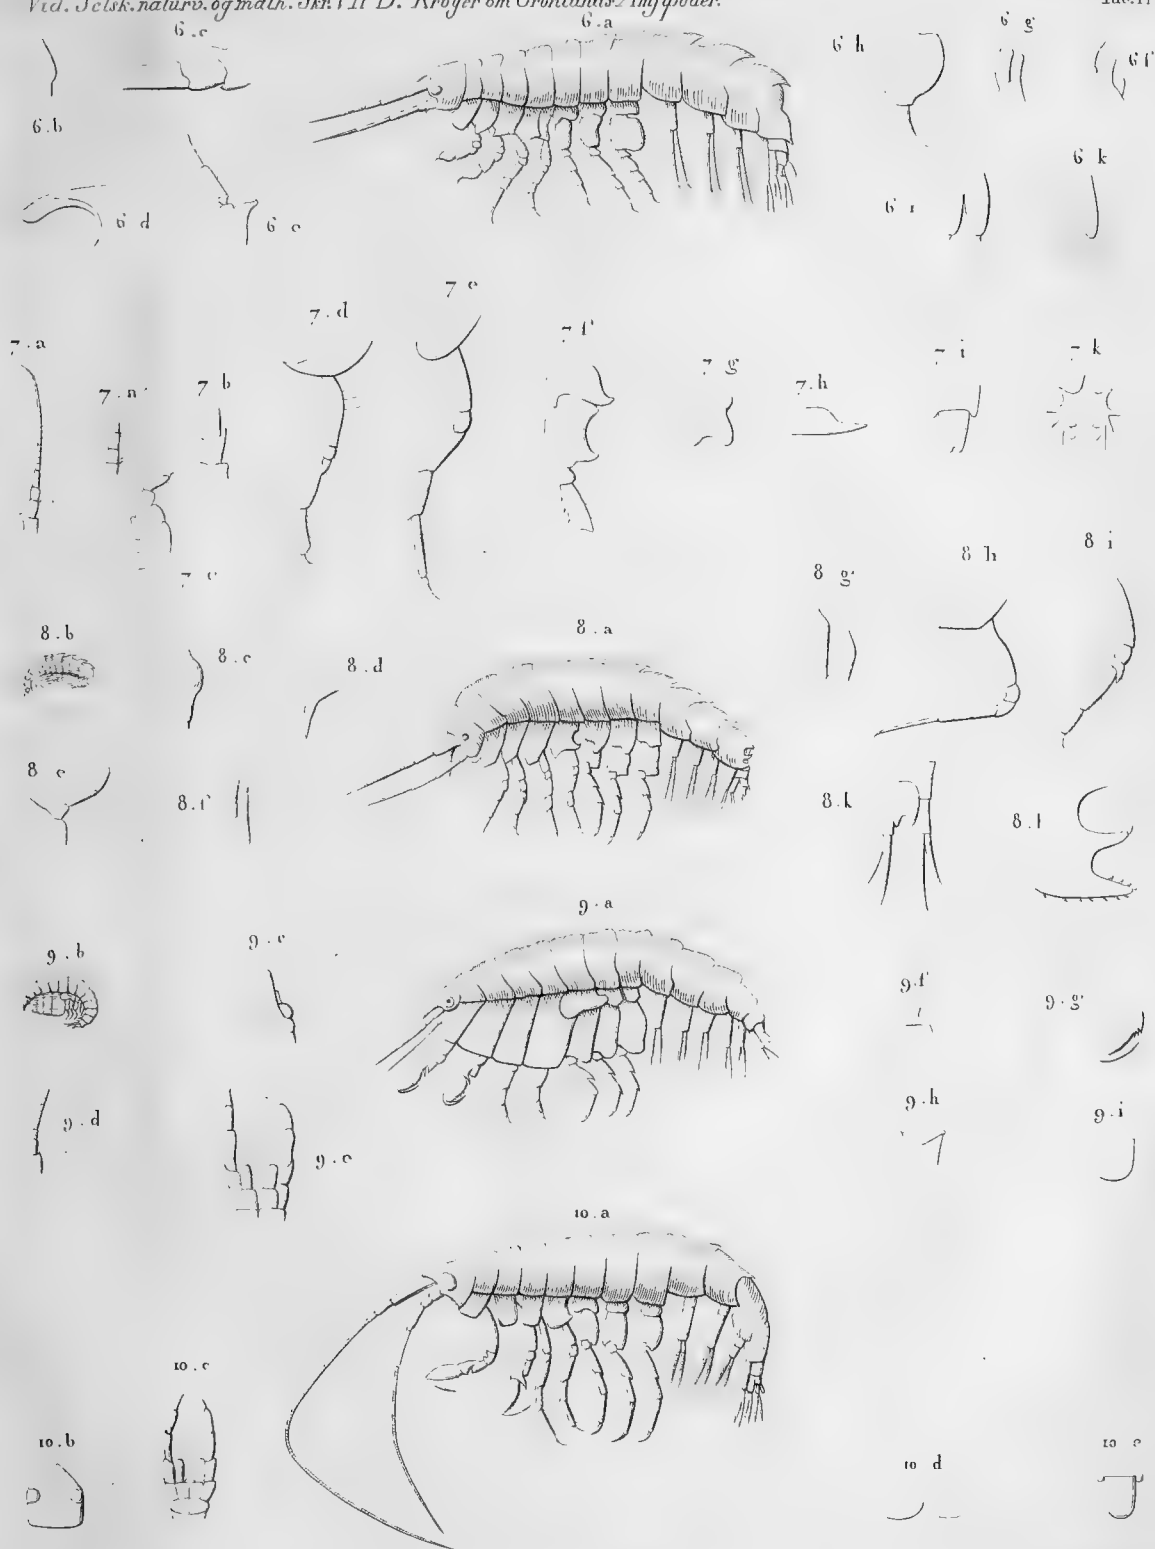 Vid. Selsk. naturv. og math. Skr. VII D. Krøyer om Grønlands Amfipoder.
6.a
6.c
6 g
6 h
6 f
6.b
6 k
6 d
6 e
6 i
7 e
7.d
7 f
7.a
7 i
7 k
7 g
7.b
7.h
7.a'
8 i
8 h
7 c
8 g
8.a
8.b
8.c
8.d
8 e
8.f
8.k
8.l
9.a
9.c
9.b
9.f
9.g
9.h
9.i
9.d
9.e
10.a
10.c
10.b
10 d
10 e